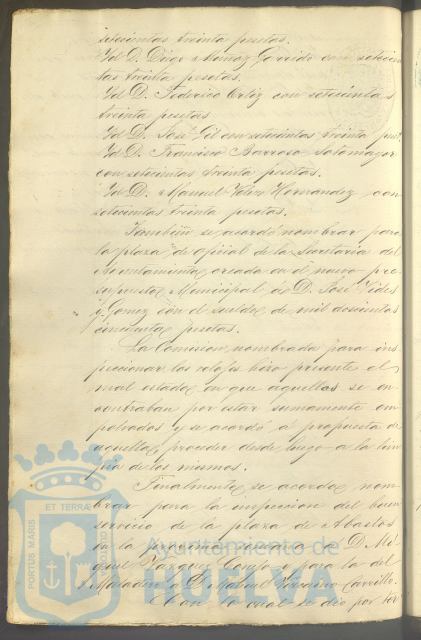 setecientas treinta pesetas.
Yd D. Diego Muñoz Garrido con setecien
tas treinta pesetas.
Yd D. Federico Ortiz con setecientas
treinta pesetas
Yd D. José Gil con setecientas treinta
Yd D. Francisco Barroso Sotomayor
con setecientas treinta pesetas.
Yd D. Manuel Velez Hernandez con
setecientas treinta pesetas.
Tambien se acordó nombrar para
la plaza de oficial de la Secretaria del
Ayuntamiento, creada en el nuevo pre
supuesto Municipal á D. José Vides
y Gomez con el sueldo de mil doscientas
cincuenta pesetas.
La Comision nombrada para ins
peccionar los relojes hizo presente el
mal estado en que aquellos se en
contraban por estar sumamente em
polvados y se acordó á propuesta de
aquella, proceder desde luego á la lim
pia de los mismos.
Finalmente se acordó nom
brar para la inspeccion del buen
servicio de la plaza de Abastos
en la proxima á D. Mi
guel Vazquez y para la del
Matadero á D. Manuel Carrillo.
Con lo cual se dió por ter
PORTUS MARIS ET TERRAE
Ayuntamiento de
HUELVA